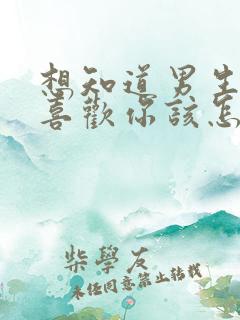 想知道男生
喜歡你該怎
柴學友
未任同意禁止轉載